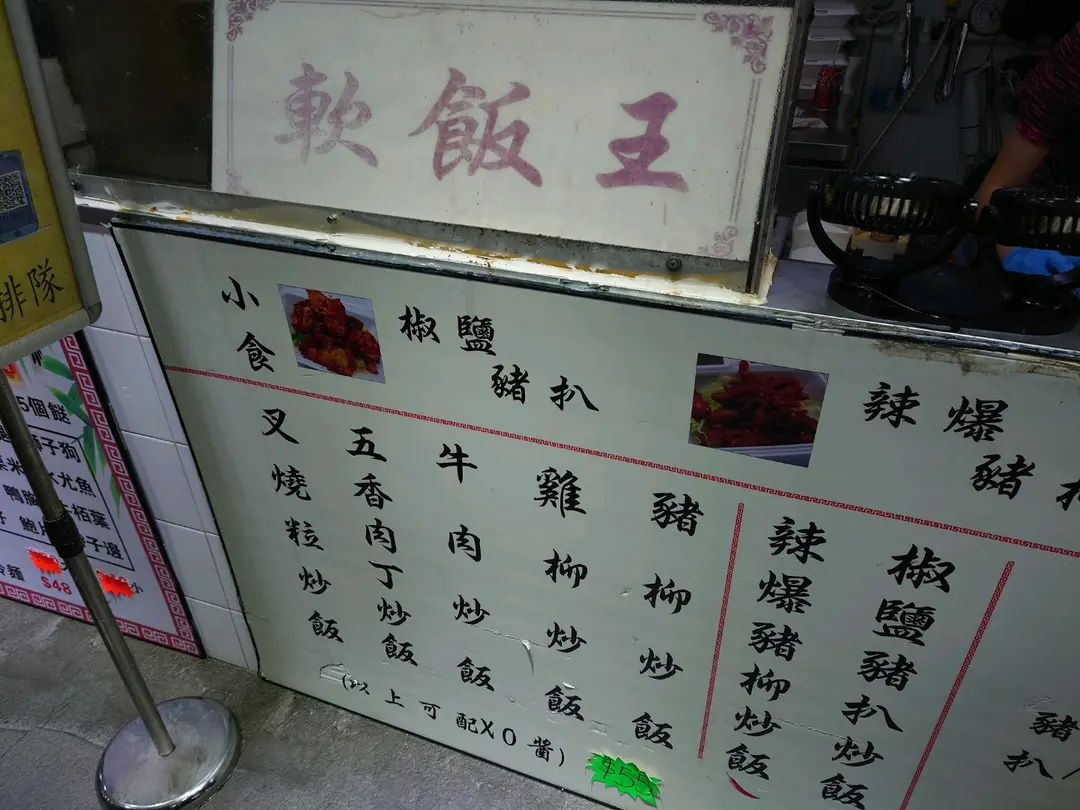 軟飯王
排隊
小食
椒鹽豬扒
辣爆豬
叉燒粒炒飯
五香肉丁炒飯
牛肉炒飯
雞柳炒飯
豬柳炒飯
辣爆豬柳炒飯
椒鹽豬扒炒飯
豬扒
(以上可配XO醬)
$55
5個餸
獅子狗
魷魚
$48
小